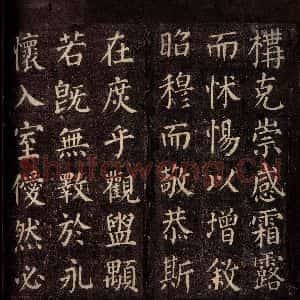 構克崇感霜露
而怵惕以增敘
昭穆而敬恭斯
在庶乎觀盥顒
若旣無斁於永
懷入室僾然必
Shufawang.Cn